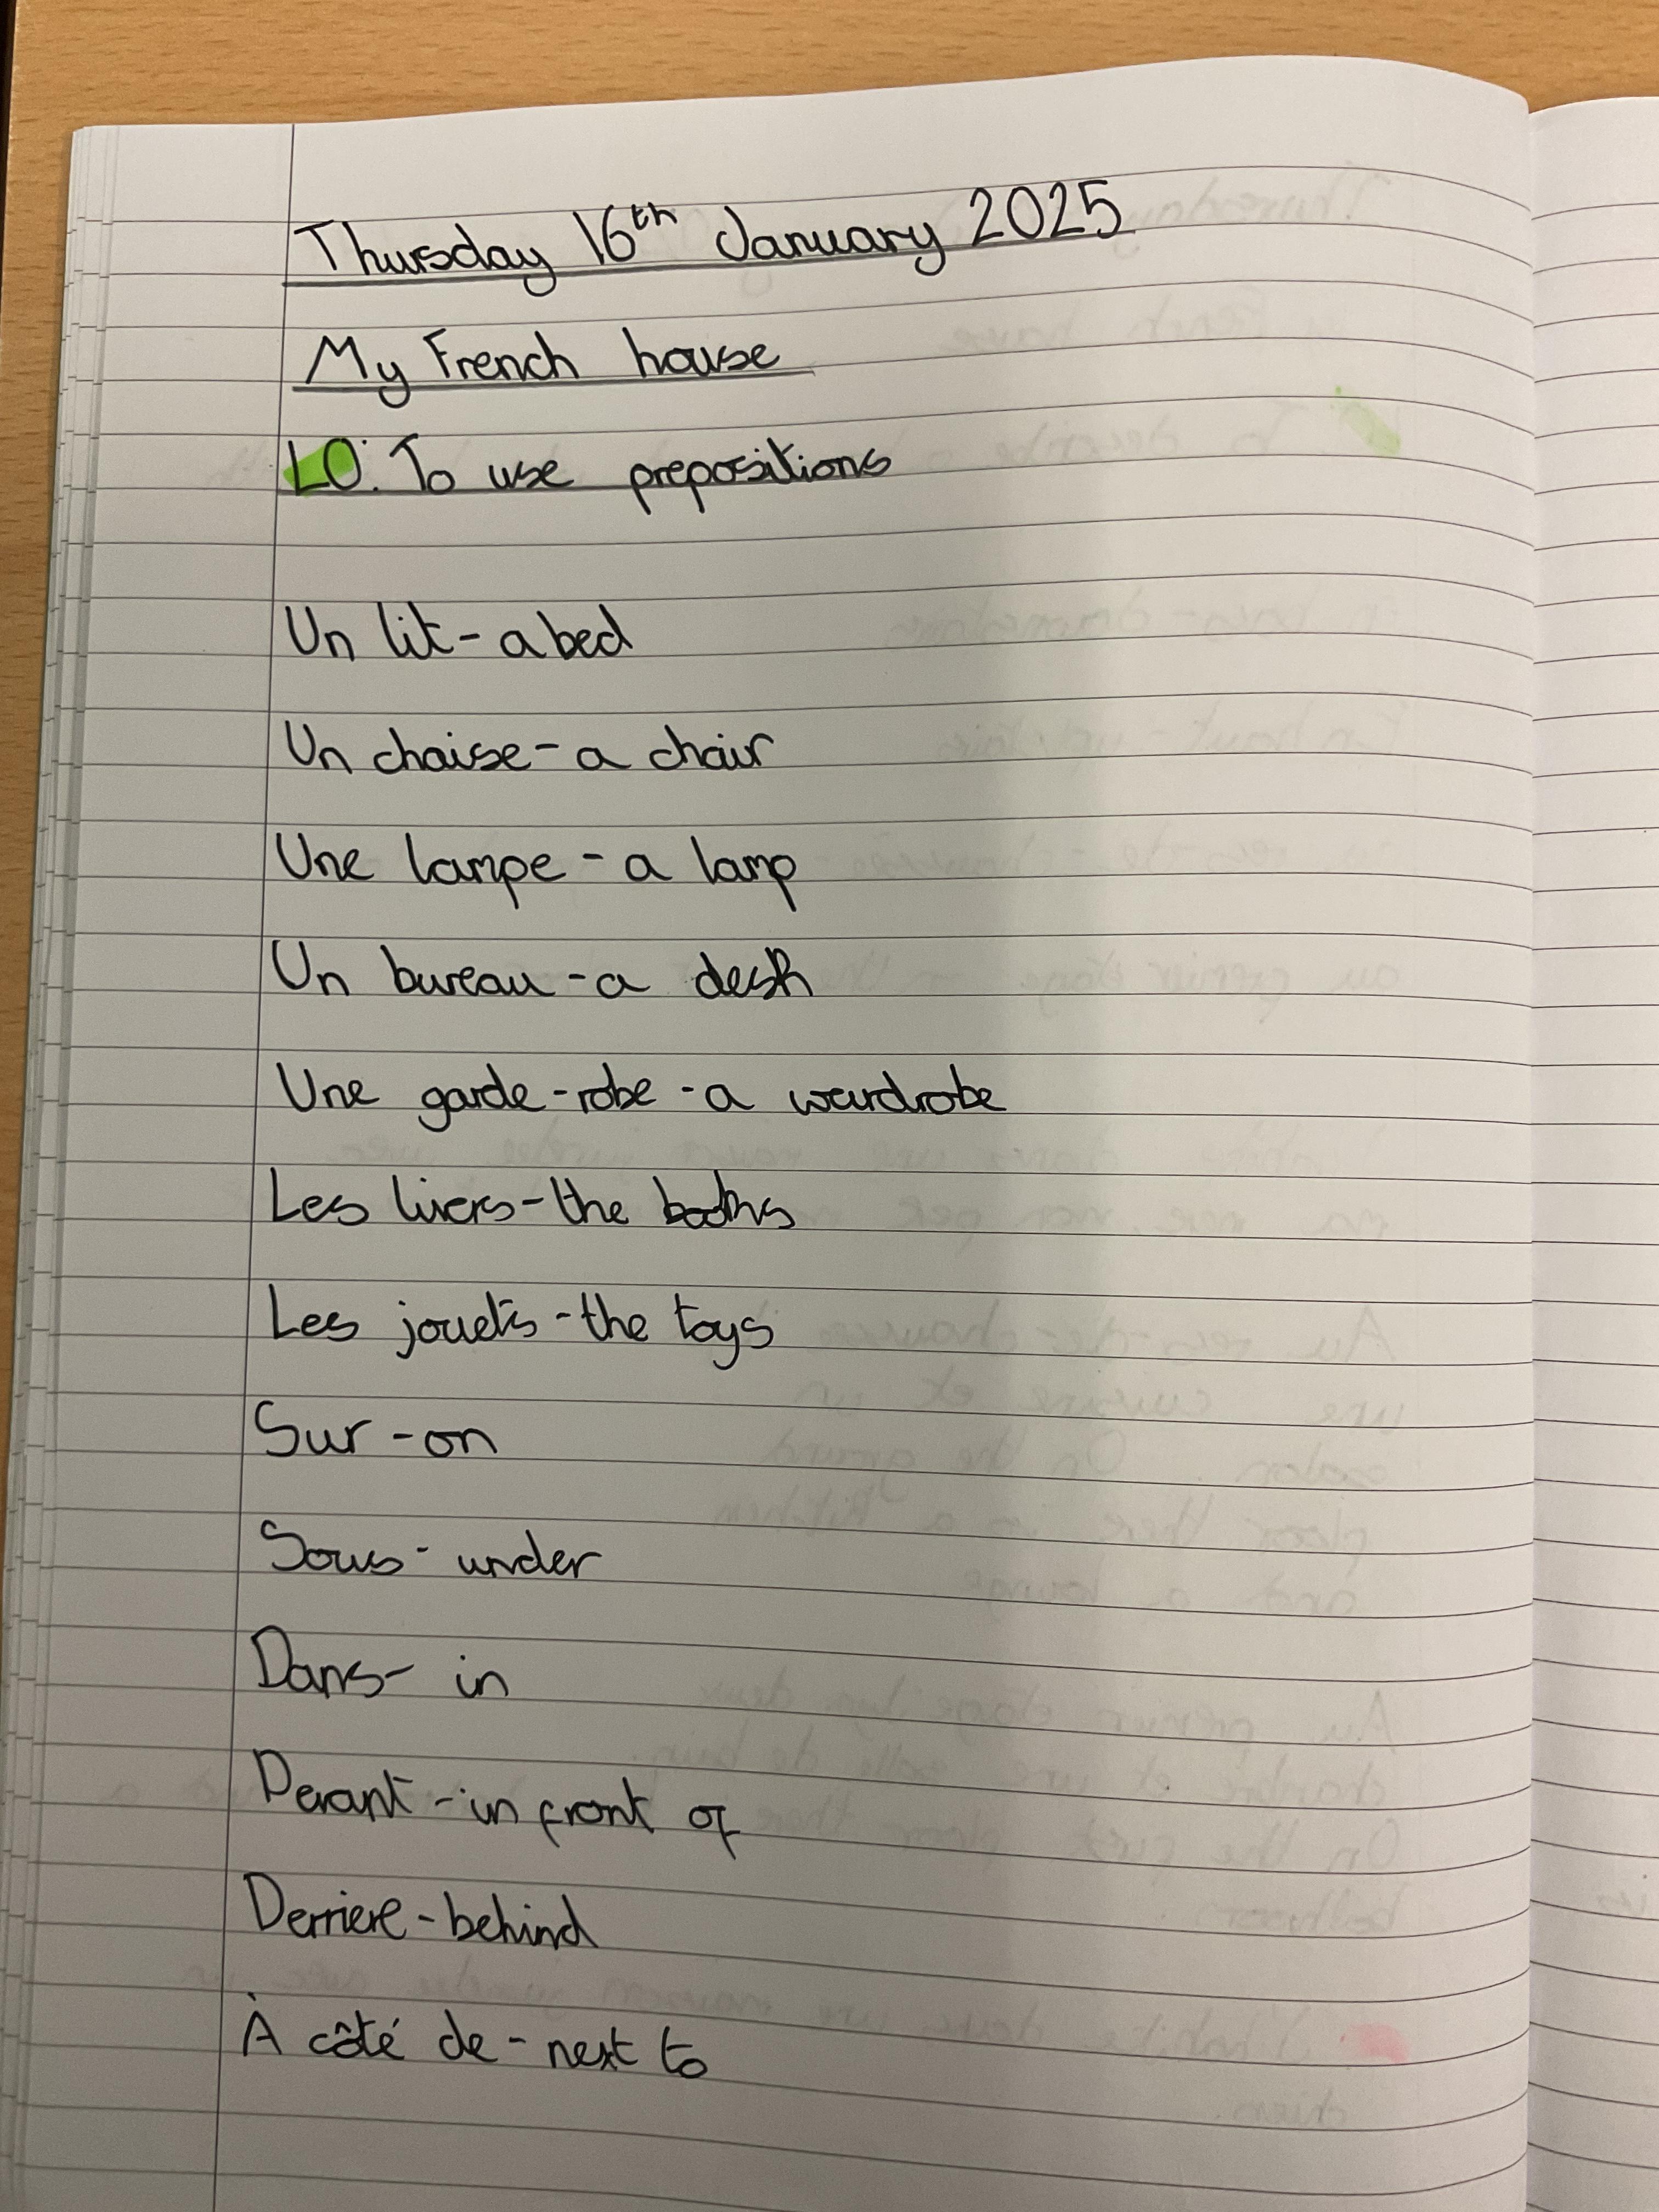 Thursday 16th January 2025
My French house
LO: To use prepositions
Un lit - a bed
Un chaise - a chair
Une lampe - a lamp
Un bureau - a desk
Une garde-robe - a wardrobe
Les livers - the books
Les jouets - the toys
Sur - on
Sous - under
Dans - in
Devant - in front of
Derriere - behind
À côté de - next to